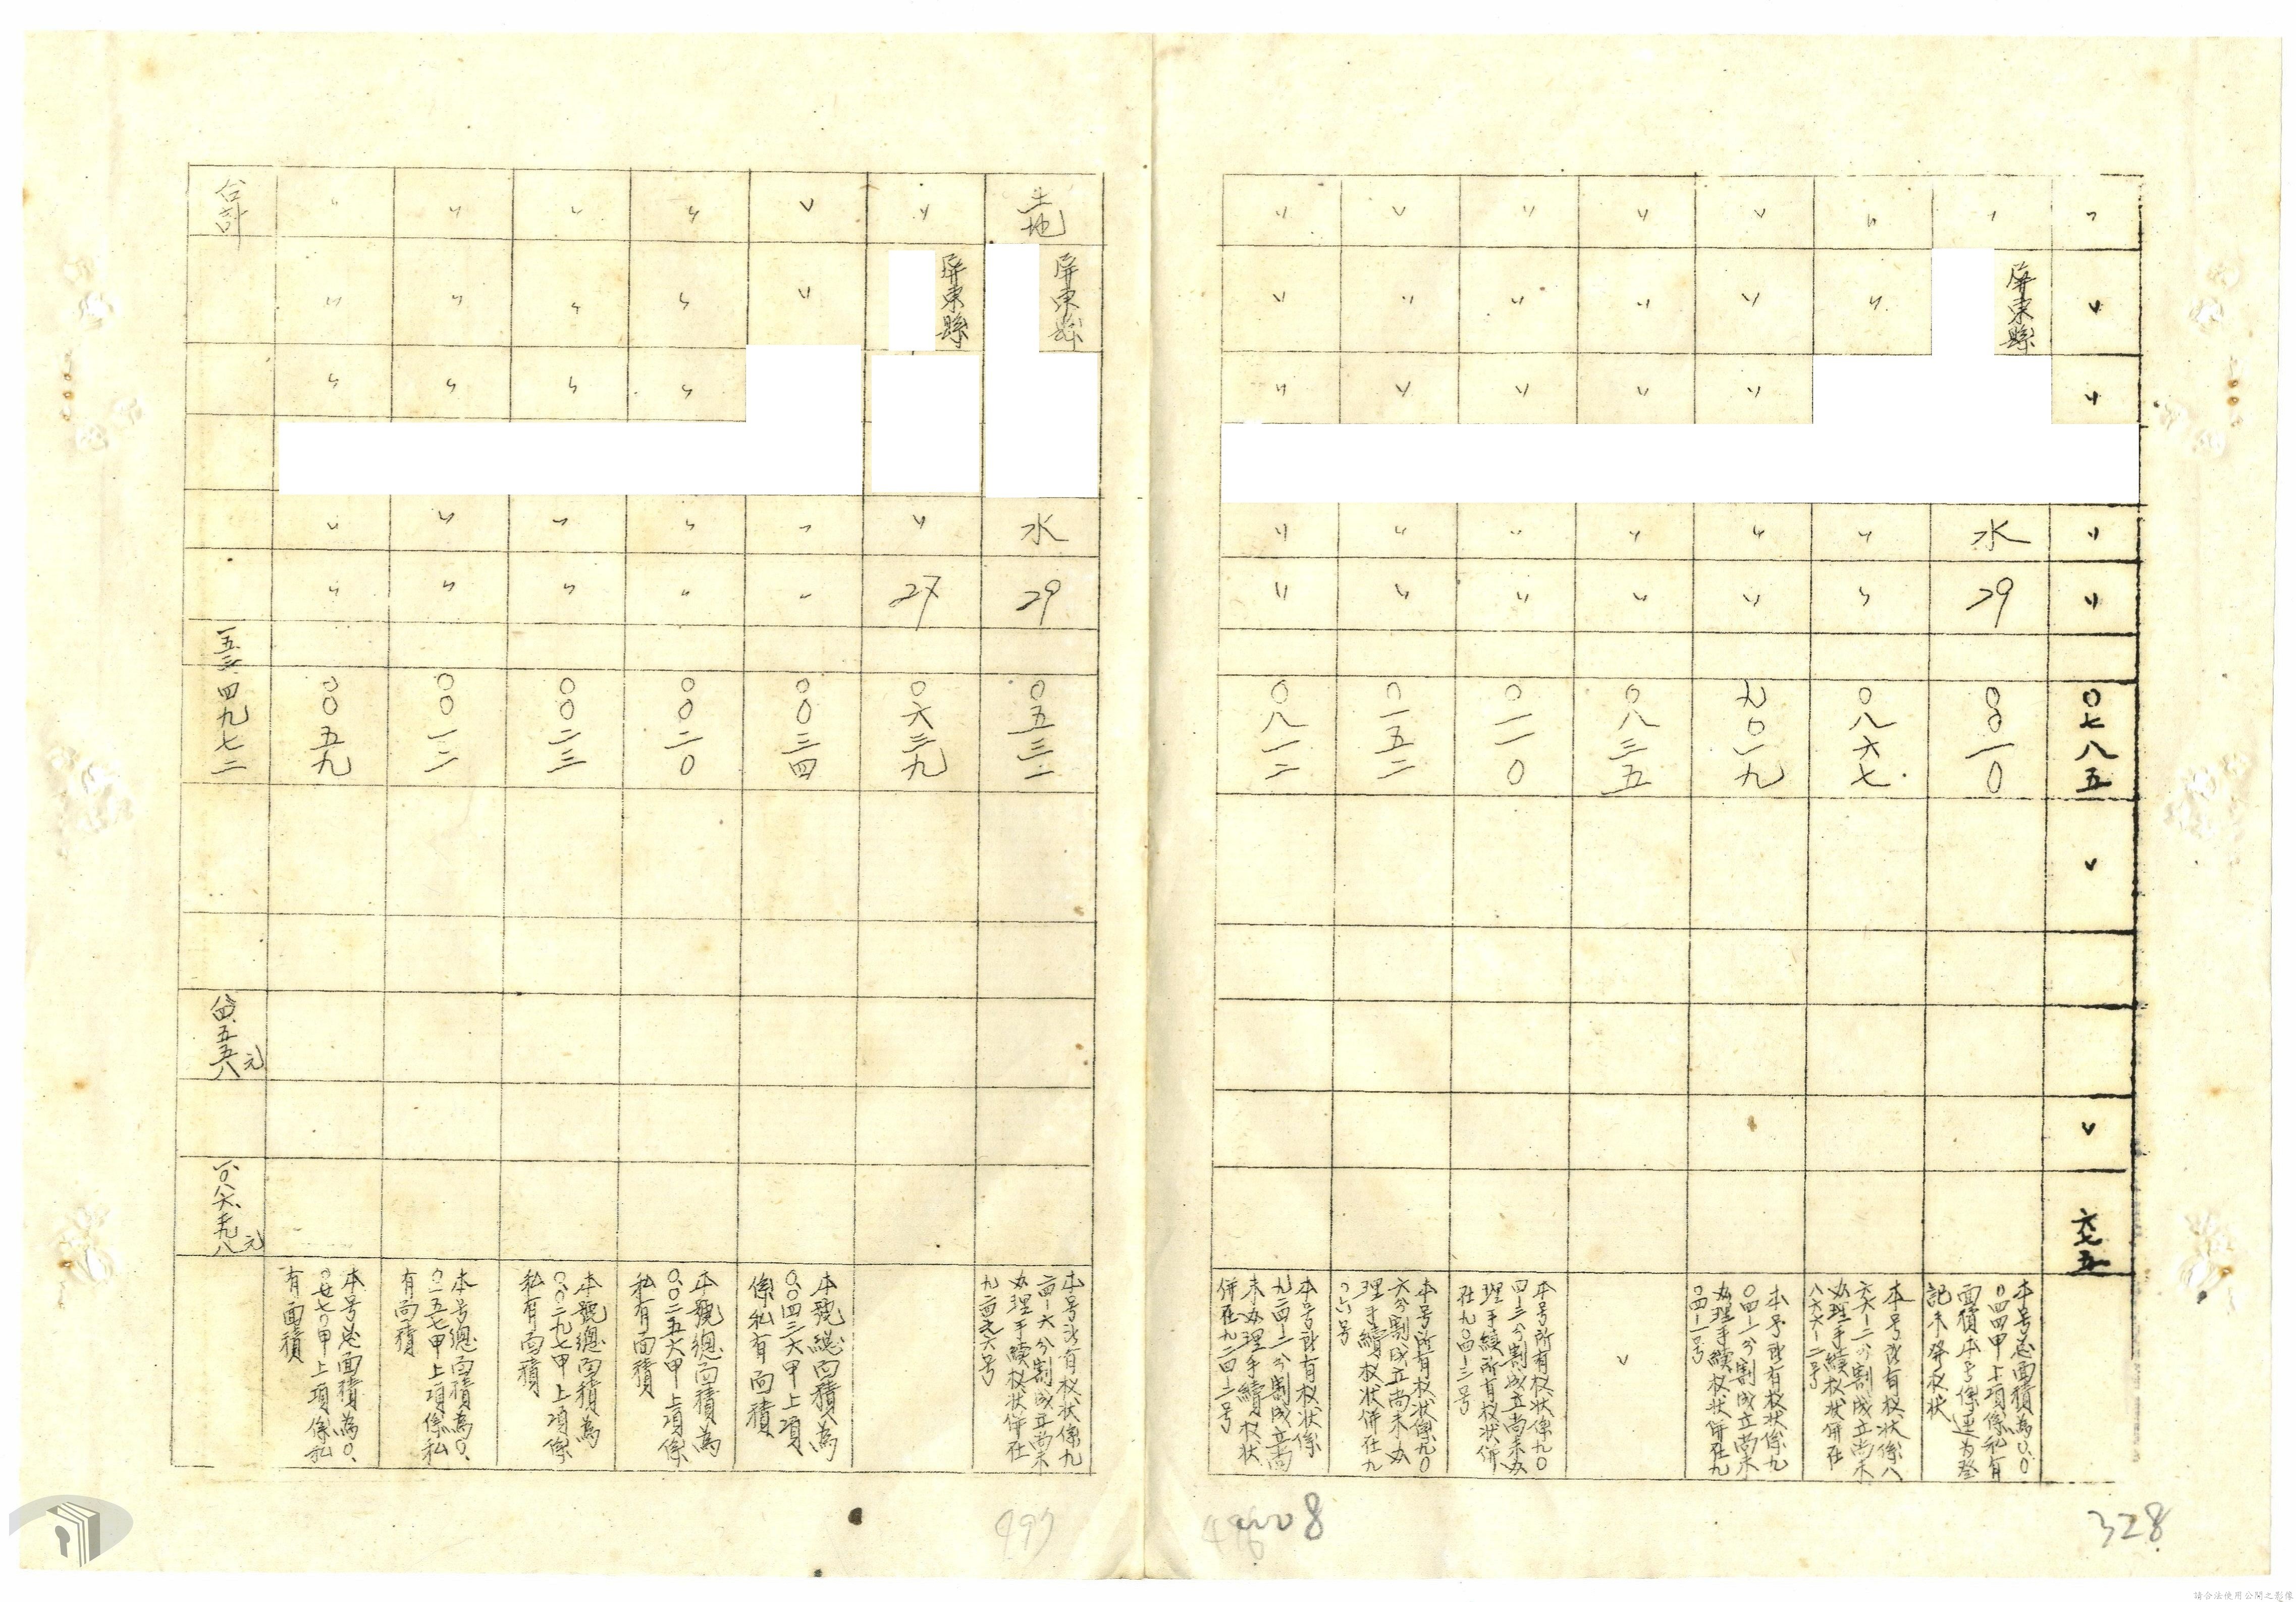 〃 〃 〃 〃 〃 〇七八五 〃 〃 六七五
〃 屏東縣 水 29 〇〇一〇
本号总面積為〇.〇
〇四四甲上項係私有
面積本号係逕为登
記未發权狀
〃 〃 〃 〃 〇八六七
本号所有权狀係八
六六-二分割成立尚未
办理手續权狀併在
八六六-二号
〃 〃 〃 〃 〃 九〇一九
本号所有权狀係九
〇四-一分割成立尚未
办理手續权狀併在九
〇四-一号
〃 〃 〃 〃 〃 〇八三五 〃
〃 〃 〃 〃 〃 〇一一〇
本号所有权狀係九〇
四-三分割成立尚未办
理手續所有权狀併
在九〇四-三号
〃 〃 〃 〃 〃 〇一五二
本号所有权狀係九〇
六分割成立尚未办
理手續权狀併在九
〃 〃 〃 〃 〃 〇八一二
本号所有权狀係
九二四-二分割成立尚
未办理手續权狀
併在九二四-二号
土地 屏東縣 水 29 〇五三一
本号所有权狀係九
二四-六分割成立尚未
办理手續权狀併在
九二四-六号
〃 屏東縣 〃 27 〇六三九
〃 〃 〃 〃 〇〇三四
本號總面積為
〇.〇四三六甲上項
係私有面積
〃 〃 〃 〃 〃 〇〇二〇
本號總面積為
〇.〇二五六甲上項係
私有面積
〃 〃 〃 〃 〃 〇〇二三
本號總面積為
〇.〇二九七甲上項係
私有面積
〃 〃 〃 〃 〃 〇〇一二
本号總面積為〇.
〇一五七甲上項係私
有面積
〃 〃 〃 〃 〃 〇〇五九
本号总面積為〇.
〇七七〇甲上項係私
有面積
合計 一五三 四九七二 元 元
497
8
328
請合法使用公開之影像